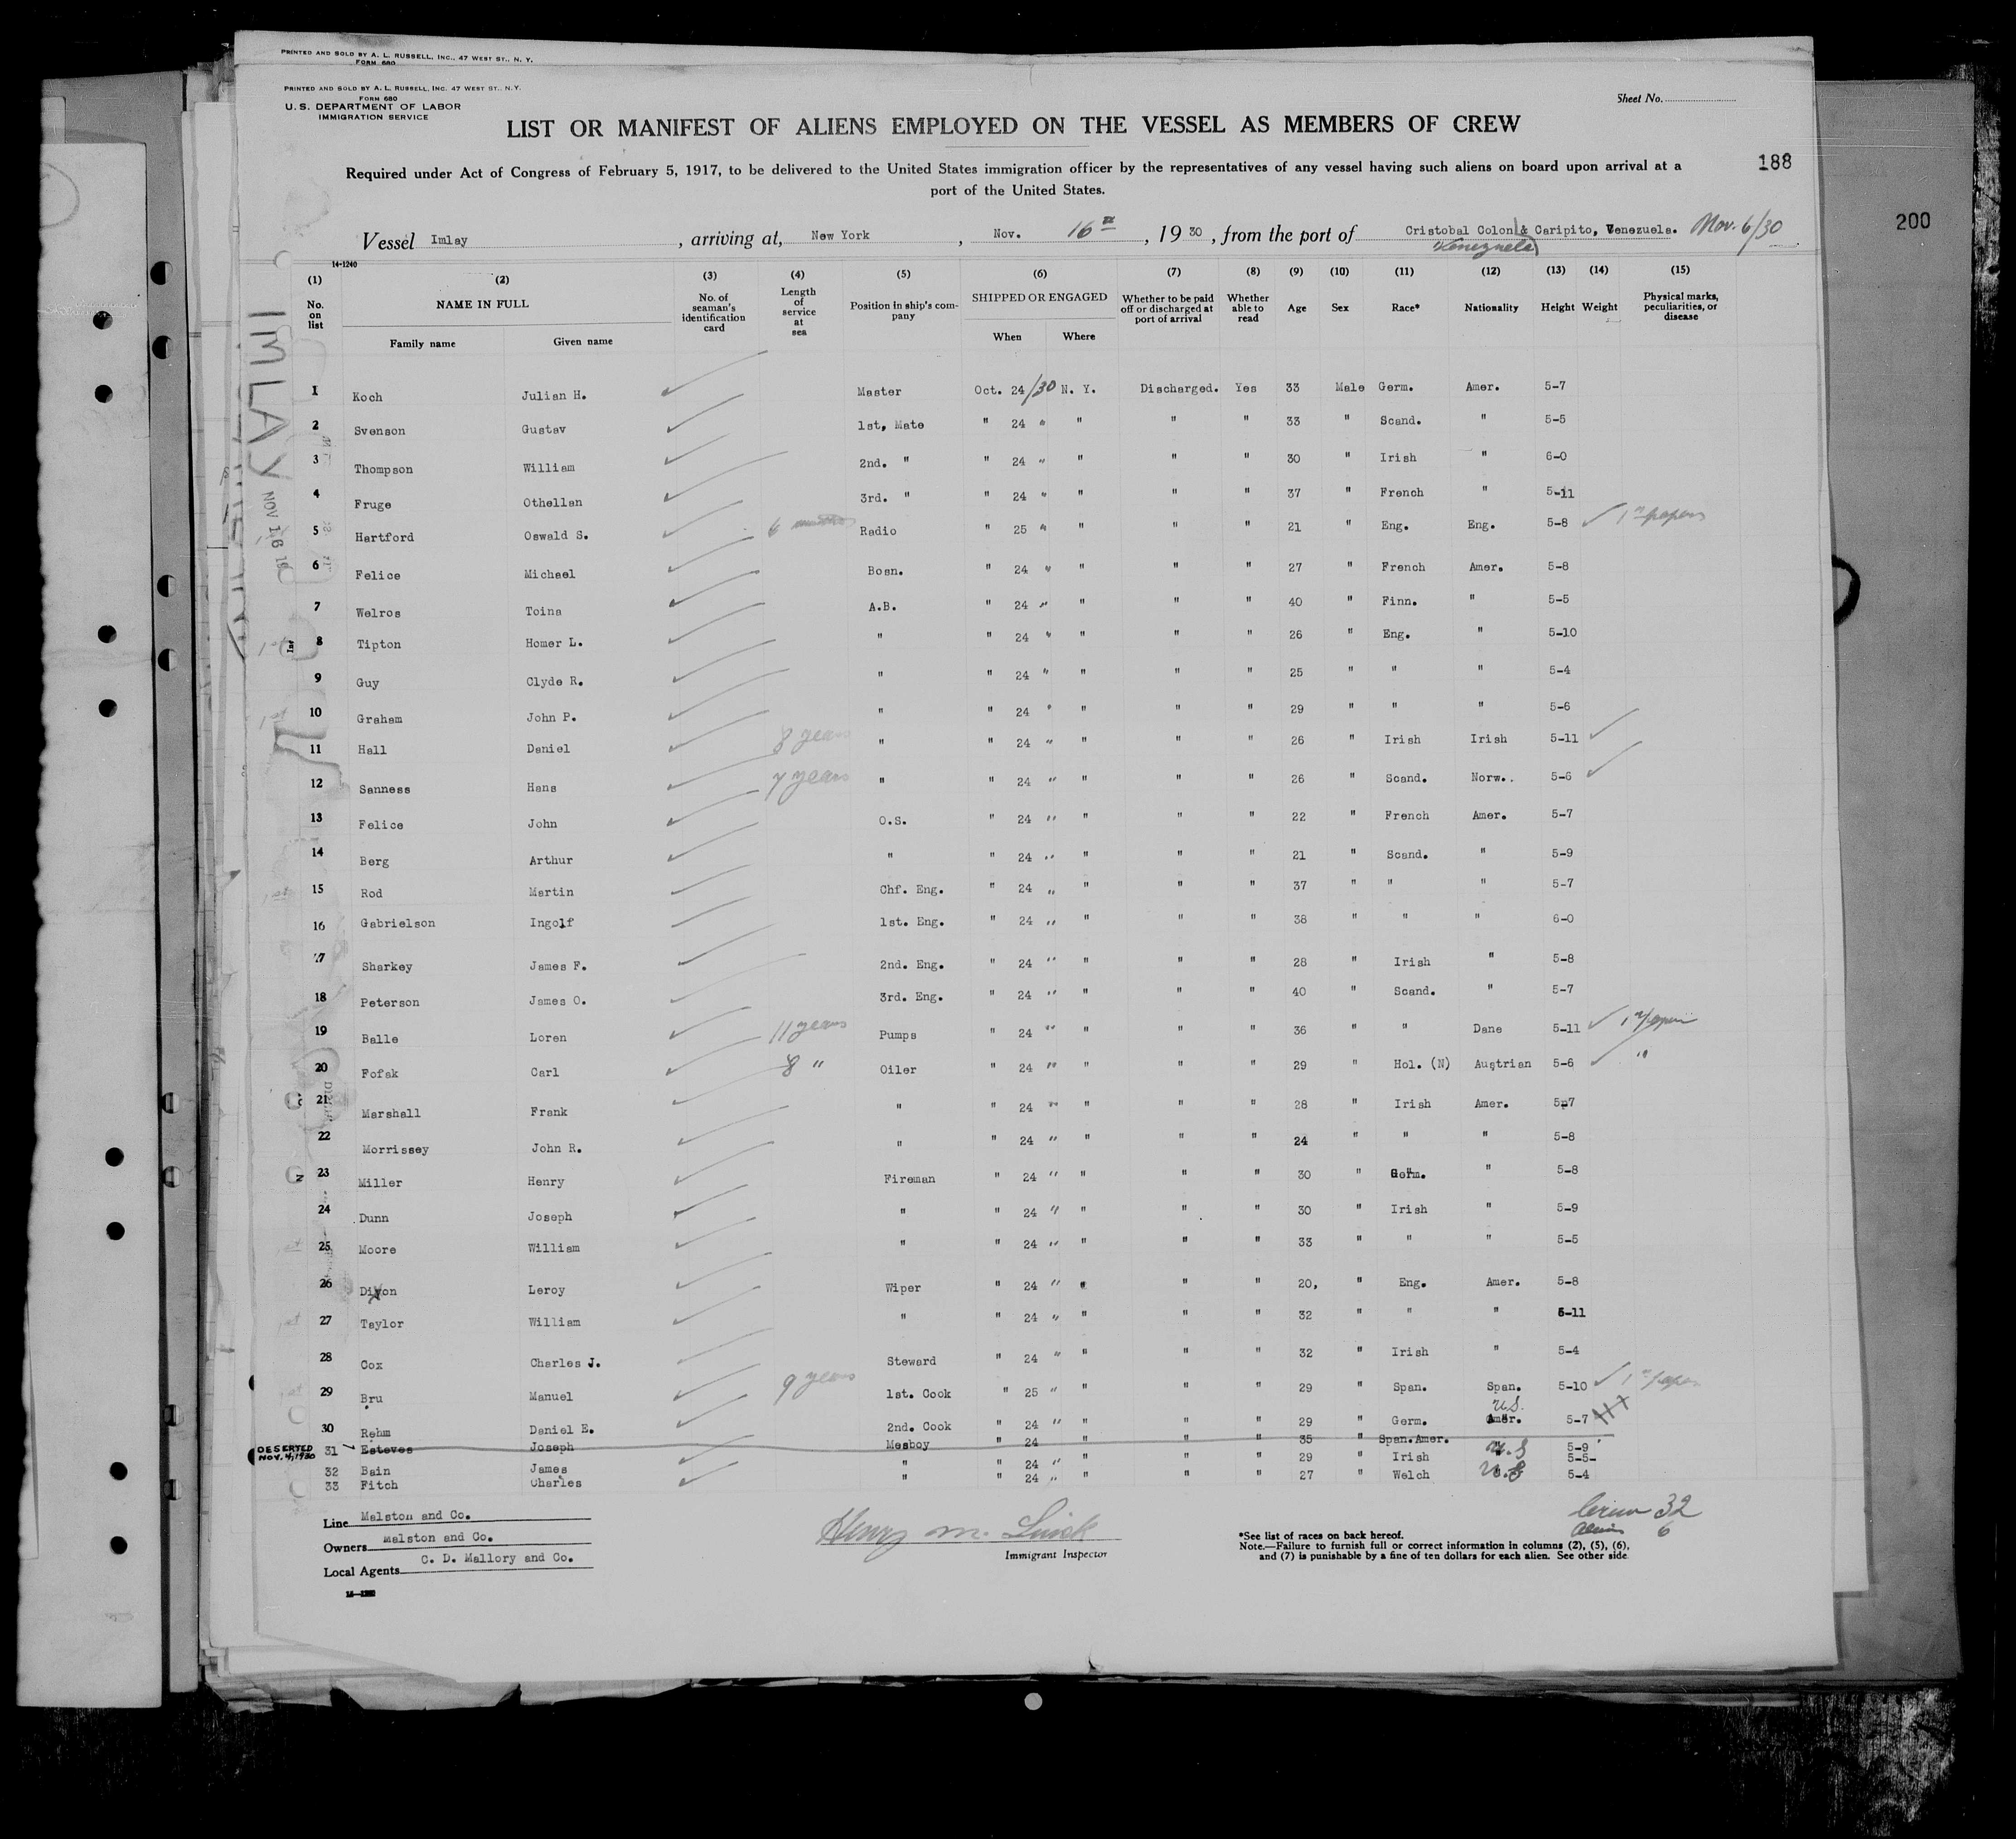 PRINTED AND SOLD BY A. L. RUSSELL, INC., 47 WEST ST., N. Y.
FORM 680
PRINTED AND SOLD BY A. L. RUSSELL, INC. 47 WEST ST., N.Y.
FORM 680
U. S. DEPARTMENT OF LABOR
IMMIGRATION SERVICE
Sheet No.
LIST OR MANIFEST OF ALIENS EMPLOYED ON THE VESSEL AS MEMBERS OF CREW
188
200
Required under Act of Congress of February 5, 1917, to be delivered to the United States immigration officer by the representatives of any vessel having such aliens on board upon arrival at a
port of the United States.
Vessel Imlay, arriving at, New York, Nov. 16th, 19 30, from the port of Cristobal Colon & Caripito, Venezuela. Nov. 6/30
Venezuela
14-1240
(1) (2) (3) (4) (5) (6) (7) (8) (9) (10) (11) (12) (13) (14) (15)
No. on list NAME IN FULL Family name Given name No. of seaman's identification card Length of service at sea Position in ship's company SHIPPED OR ENGAGED When Where Whether to be paid off or discharged at port of arrival Whether able to read Age Sex Race* Nationality Height Weight Physical marks, peculiarities, or disease
IMLAY NOV 16
1 Koch Julian H. Master Oct. 24/30 N. Y. Discharged. Yes 33 Male Germ. Amer. 5-7
2 Svenson Gustav 1st, Mate " 24 " " " " 33 " Scand. " 5-5
3 Thompson William 2nd. " " 24 " " " " 30 " Irish " 6-0
4 Fruge Othellan 3rd. " " 24 " " " " 37 " French " 5-11
5 Hartford Oswald S. 6 months Radio " 25 " " " " 21 " Eng. Eng. 5-8 1st papers
6 Felice Michael Bosn. " 24 " " " " 27 " French Amer. 5-8
7 Welros Toina A.B. " 24 " " " " 40 " Finn. " 5-5
8 Tipton Homer L. " " 24 " " " " 26 " Eng. " 5-10
9 Guy Clyde R. " " 24 " " " " 25 " " " 5-4
10 Graham John P. " " 24 " " " " 29 " " " 5-6
11 Hall Daniel 8 years " " 24 " " " " 26 " Irish Irish 5-11
12 Sanness Hans 7 years " " 24 " " " " 26 " Scand. Norw.. 5-6
13 Felice John O.S. " 24 " " " " 22 " French Amer. 5-7
14 Berg Arthur " " 24 " " " " 21 " Scand. " 5-9
15 Rod Martin Chf. Eng. " 24 " " " " 37 " " " 5-7
16 Gabrielson Ingolf 1st. Eng. " 24 " " " " 38 " " " 6-0
17 Sharkey James F. 2nd. Eng. " 24 " " " " 28 " Irish " 5-8
18 Peterson James O. 3rd. Eng. " 24 " " " " 40 " Scand. " 5-7
19 Balle Loren 11 years Pumps " 24 " " " " 36 " " Dane 5-11 1st papers
20 Fofak Carl 8 " Oiler " 24 " " " " 29 " Hol. (N) Austrian 5-6 "
21 Marshall Frank " " 24 " " " " 28 " Irish Amer. 5-7
22 Morrissey John R. " " 24 " " " " 24 " " " 5-8
23 Miller Henry Fireman " 24 " " " " 30 " Germ. " 5-8
24 Dunn Joseph " " 24 " " " " 30 " Irish " 5-9
25 Moore William " " 24 " " " " 33 " " " 5-5
26 Dixon Leroy Wiper " 24 " " " " 20, " Eng. Amer. 5-8
27 Taylor William " " 24 " " " " 32 " " " 5-11
28 Cox Charles J. Steward " 24 " " " " 32 " Irish " 5-4
29 Bru Manuel 9 years 1st. Cook " 25 " " " " 29 " Span. Span. 5-10 1st papers
30 Rehm Daniel E. 2nd. Cook " 24 " " " " 29 " Germ. Amer. U.S. 5-7
DESERTED NOV. 4, 1930
31 Esteves Joseph Mesboy " 24 " " " 35 " Span.Amer. 5-9
32 Bain James " " 24 " " " " 29 " Irish U.S 5-5-
33 Fitch Charles " " 24 " " " " 27 " Welch U.S 5-4
Line Malston and Co.
Owners Malston and Co.
Local Agents C. D. Mallory and Co.
Henry M.
Immigrant Inspector
Crew 32
Aliens 6
*See list of races on back hereof.
Note.—Failure to furnish full or correct information in columns (2), (5), (6),
and (7) is punishable by a fine of ten dollars for each alien. See other side